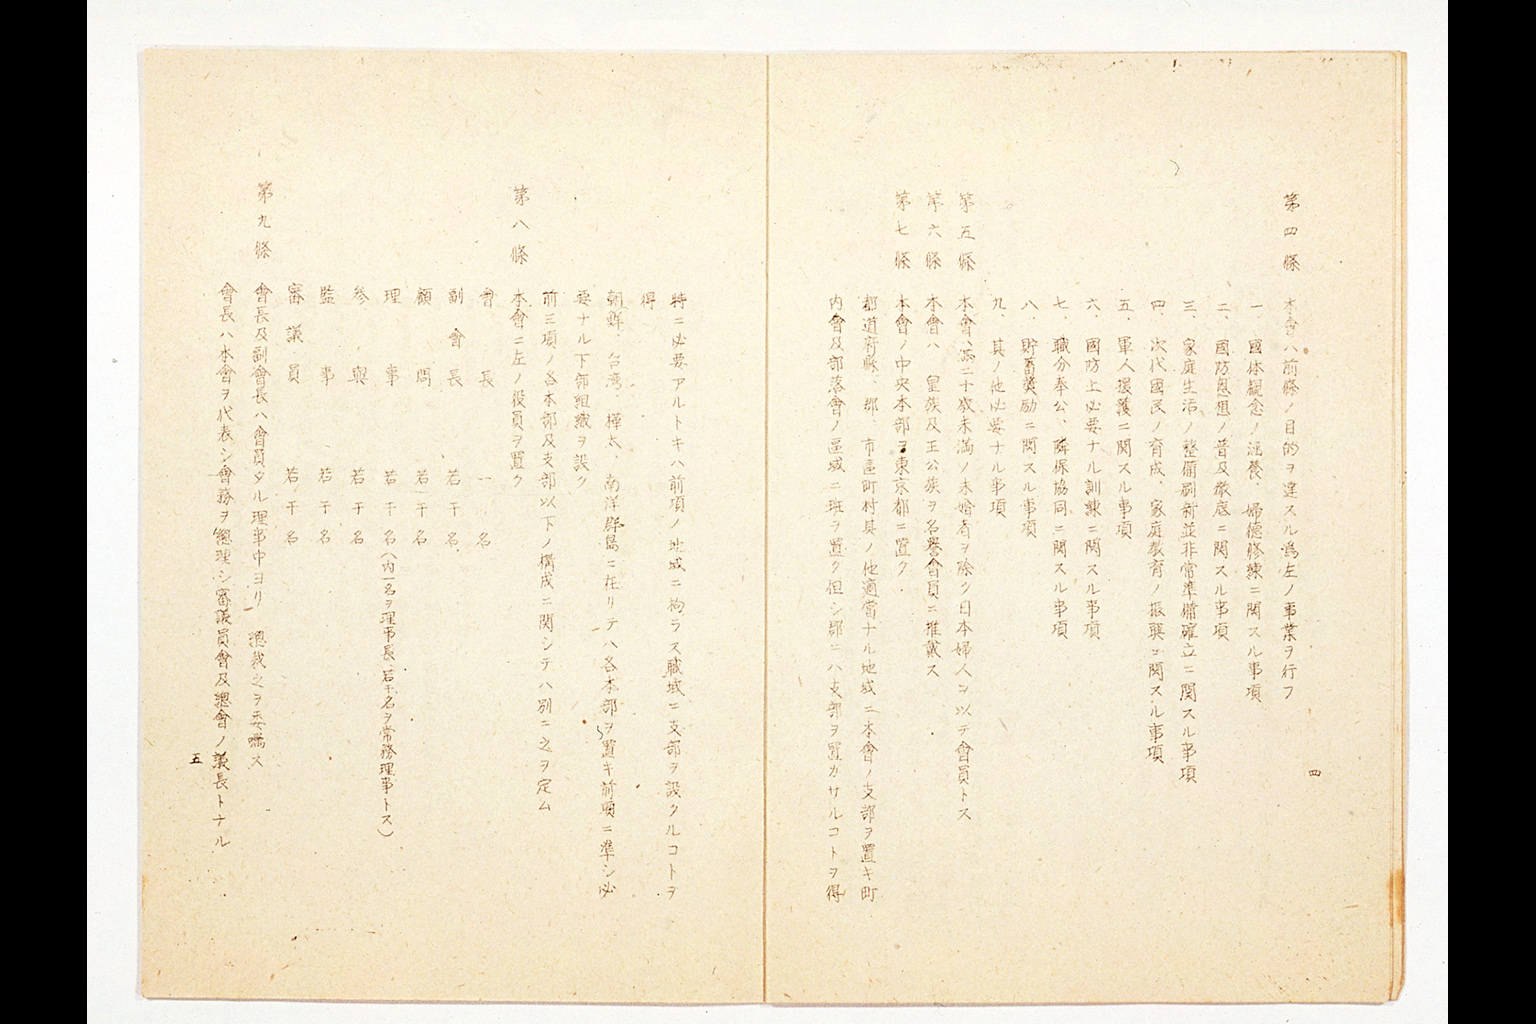 第四條　本會ハ前條ノ目的ヲ達スル爲左ノ事業ヲ行フ
一、國体觀念ノ涵養、婦德修練ニ関スル事項
二、國防思想ノ普及徹底ニ関スル事項
三、家庭生活ノ整備刷新並非常準備確立ニ関スル事項
四、次代國民ノ育成、家庭教育ノ振興ニ関スル事項
五、軍人援護ニ関スル事項
六、國防上必要ナル訓練ニ関スル事項
七、職分奉公、隣保協同ニ関スル事項
八、貯蓄奬励ニ関スル事項
九、其ノ他必要ナル事項
第五條　本會ハ満二十歳未満ノ未婚者ヲ除ク日本婦人ヲ以テ會員トス
第六條　本會ハ　皇族及王公族ヲ名譽會員ニ推戴ス
第七條　本會ノ中央本部ヲ東京都ニ置ク
都道府縣、郡、市區町村其ノ他適當ナル地域ニ本會ノ支部ヲ置キ町
内會及部落會ノ區域ニ班ヲ置ク但シ郡ニハ支部ヲ置カサルコトヲ得
四
特ニ必要アルトキハ前項ノ地域ニ拘ラス職域ニ支部ヲ設クルコトヲ
得
朝鮮、台湾、樺太、南洋群島ニ在リテハ各本部ヲ置キ前項ニ準シ必
要ナル下部組織ヲ設ク
前三項ノ各本部及支部以下ノ構成ニ関シテハ別ニ之ヲ定ム
第八條　本會ニ左ノ役員ヲ置ク
會長　一名
副會長　若干名
顧問　若干名
理事　若干名（内一名ヲ理事長、若干名ヲ常務理事トス）
參與　若干名
監事　若干名
審議員　若干名
第九條　會長及副會長ハ會員タル理事中ヨリ　總裁之ヲ委囑ス
會長ハ本會ヲ代表シ會務ヲ總理シ審議員會及總會ノ議長トナル
五